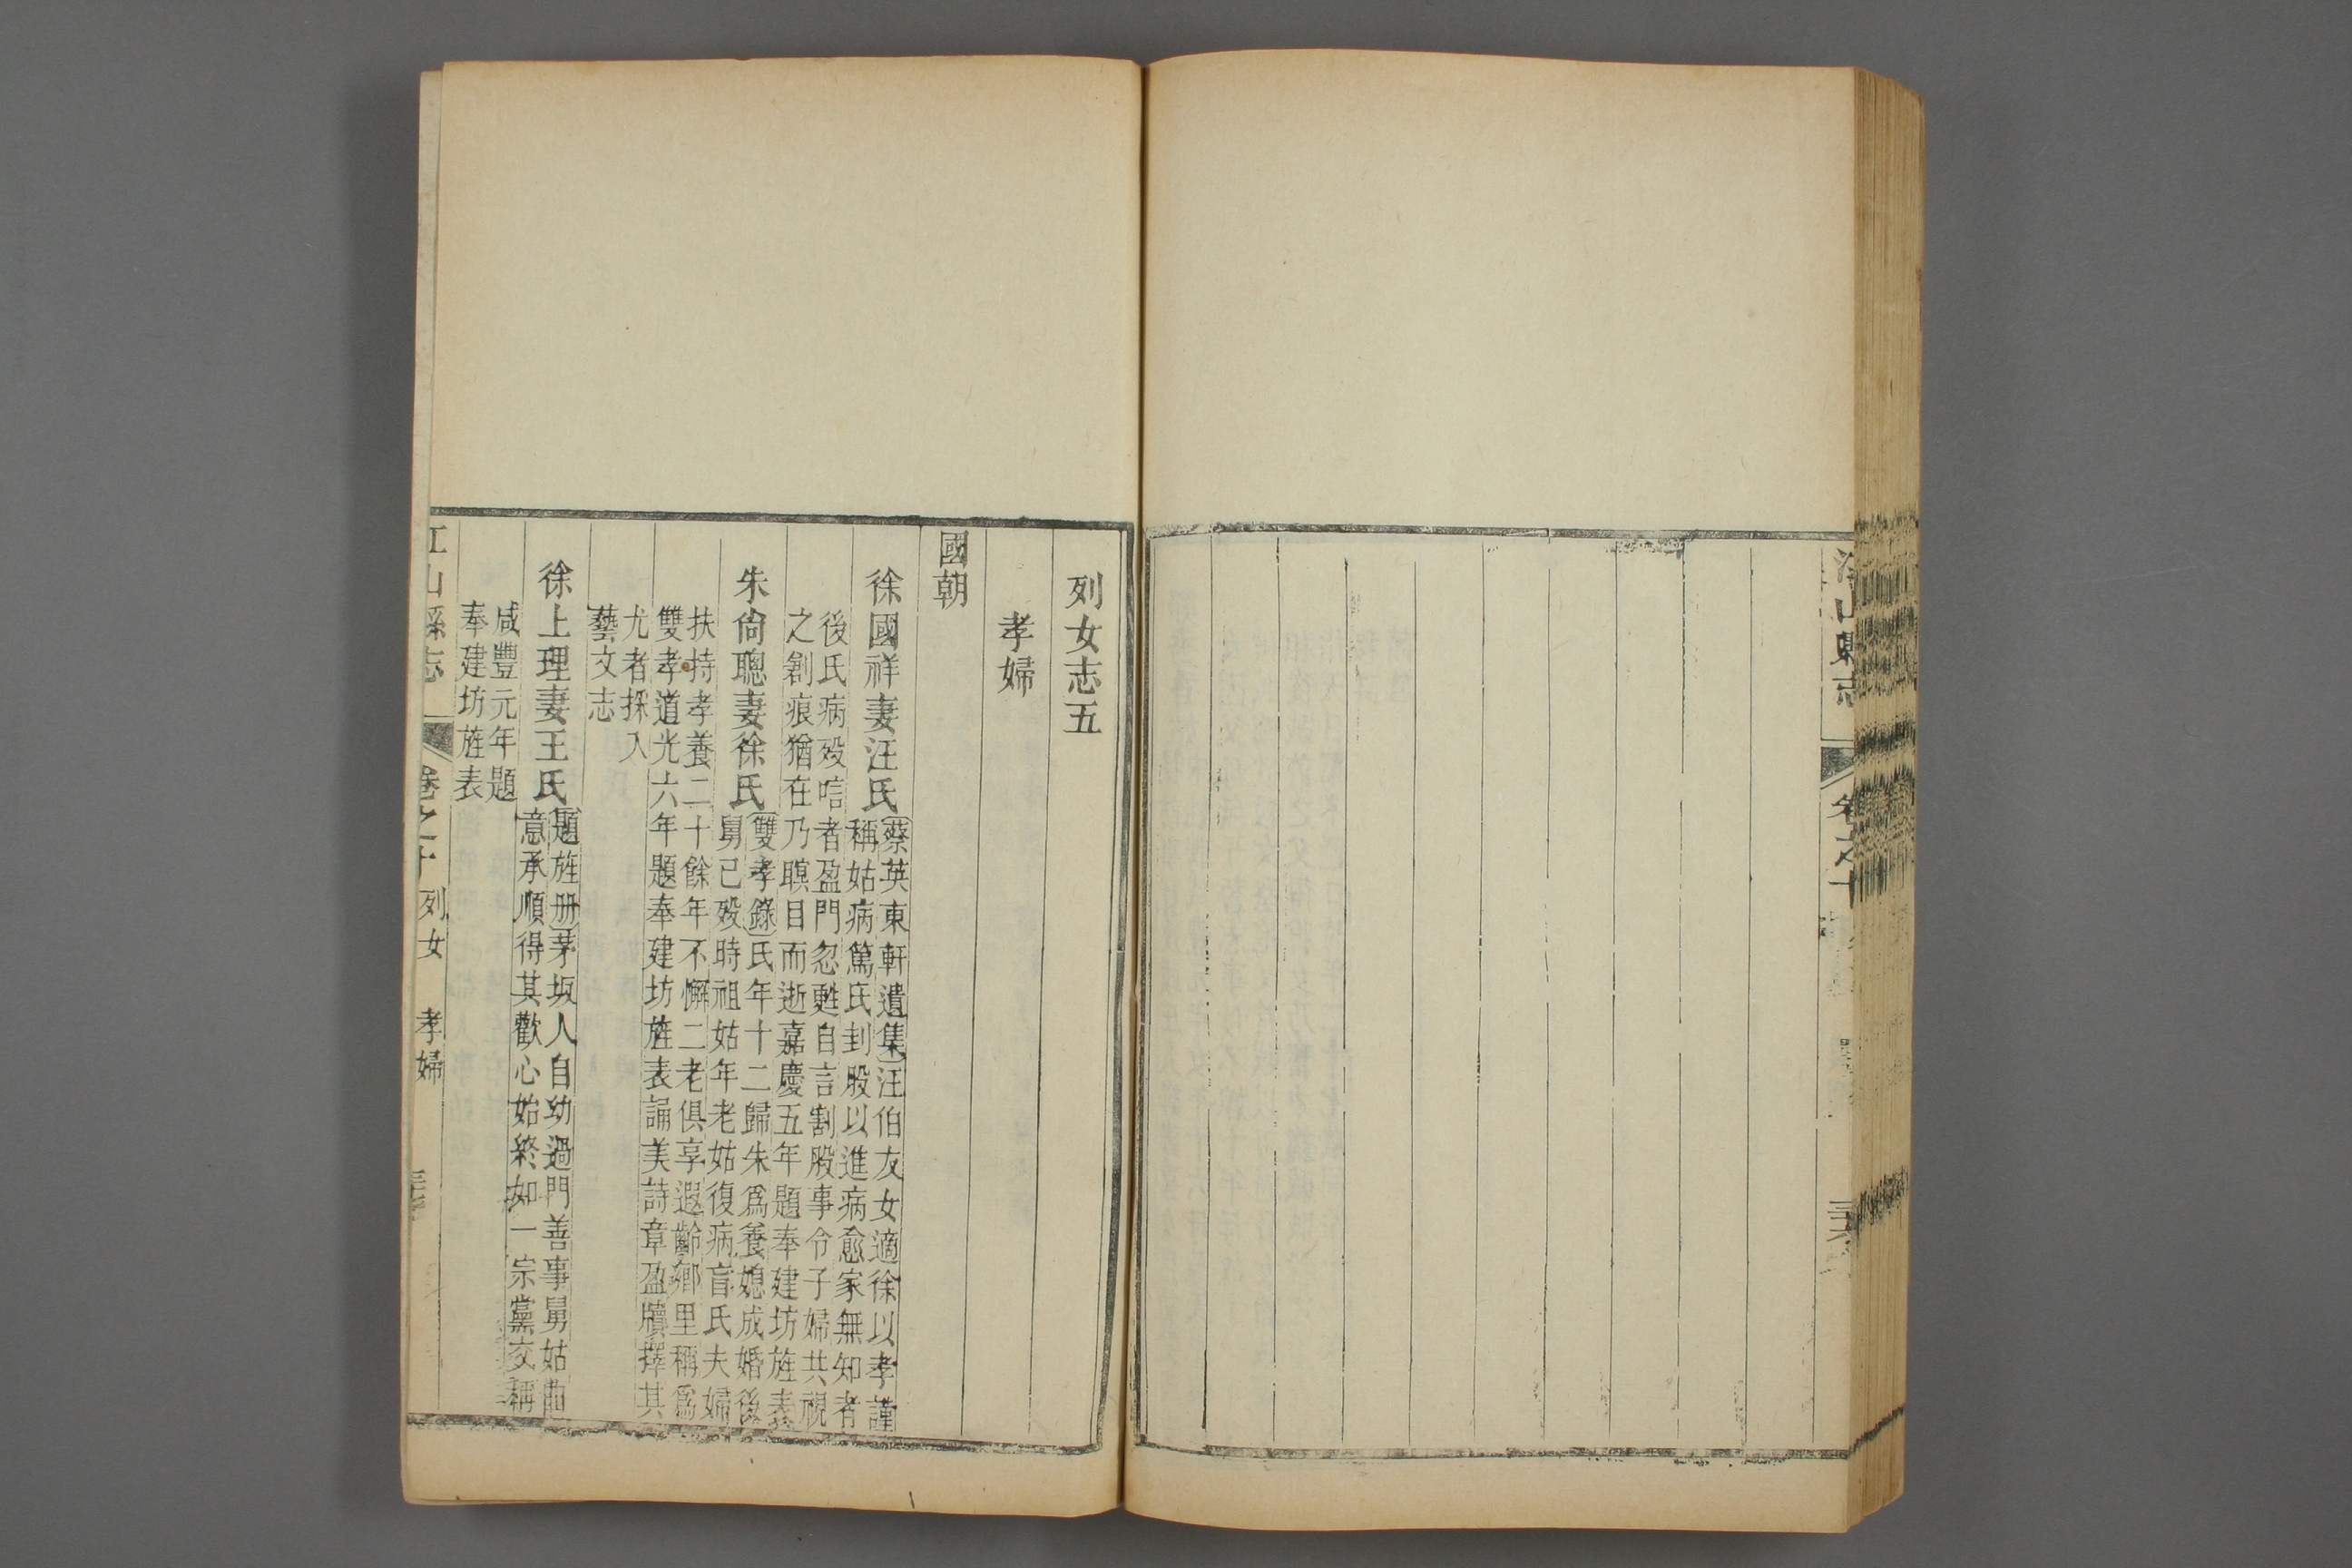 列女志五
孝婦
國朝
徐國祥妻汪氏
蔡英東軒遺集汪伯友女適徐以孝謹
稱姑病篤氏刲股以進病愈家無知者
後氏病殁唁者盈門忽甦自言割股事令子婦共視
之創痕猶在乃瞑目而逝嘉慶五年題奉建坊旌表
朱尙聰妻徐氏
雙孝錄氏年十二歸朱爲養媳成婚後
舅已殁時祖姑年老姑復病盲氏夫婦
扶持孝養二十餘年不懈二老俱享遐齡鄉里稱爲
雙孝道光六年題奉建坊旌表誦美詩章盈牘擇其
尤者採入
藝文志
徐上理妻王氏
題旌册茅坂人自幼過門善事舅姑曲
意承順得其歡心始終如一宗黨交稱
咸豐元年題
奉建坊旌表
江山縣志 卷之十 列女 孝婦